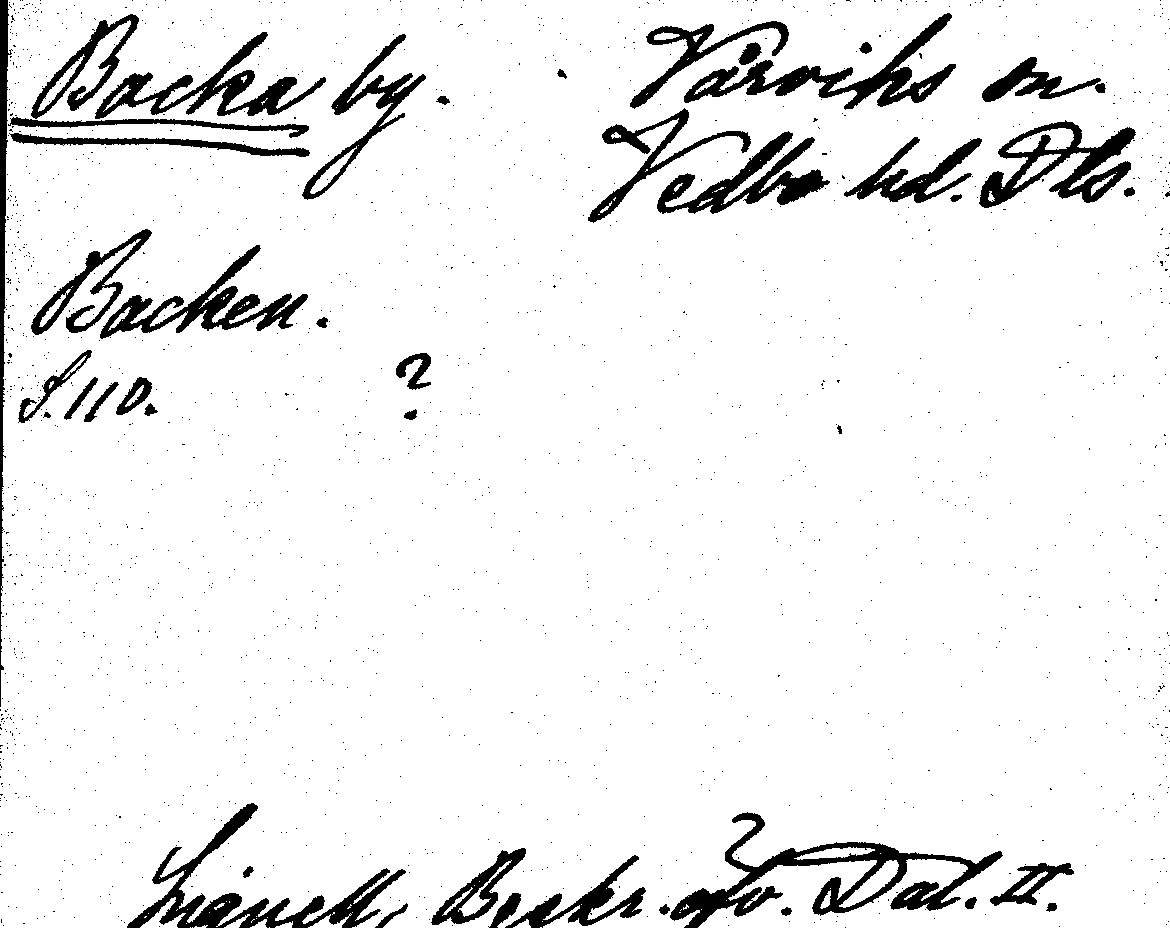 Backa by.
Vårviks sn.
Vedbo hd. Dls.
Backen.
S. 110. ?
Lignell, Beskr. öfv. Dal. II.